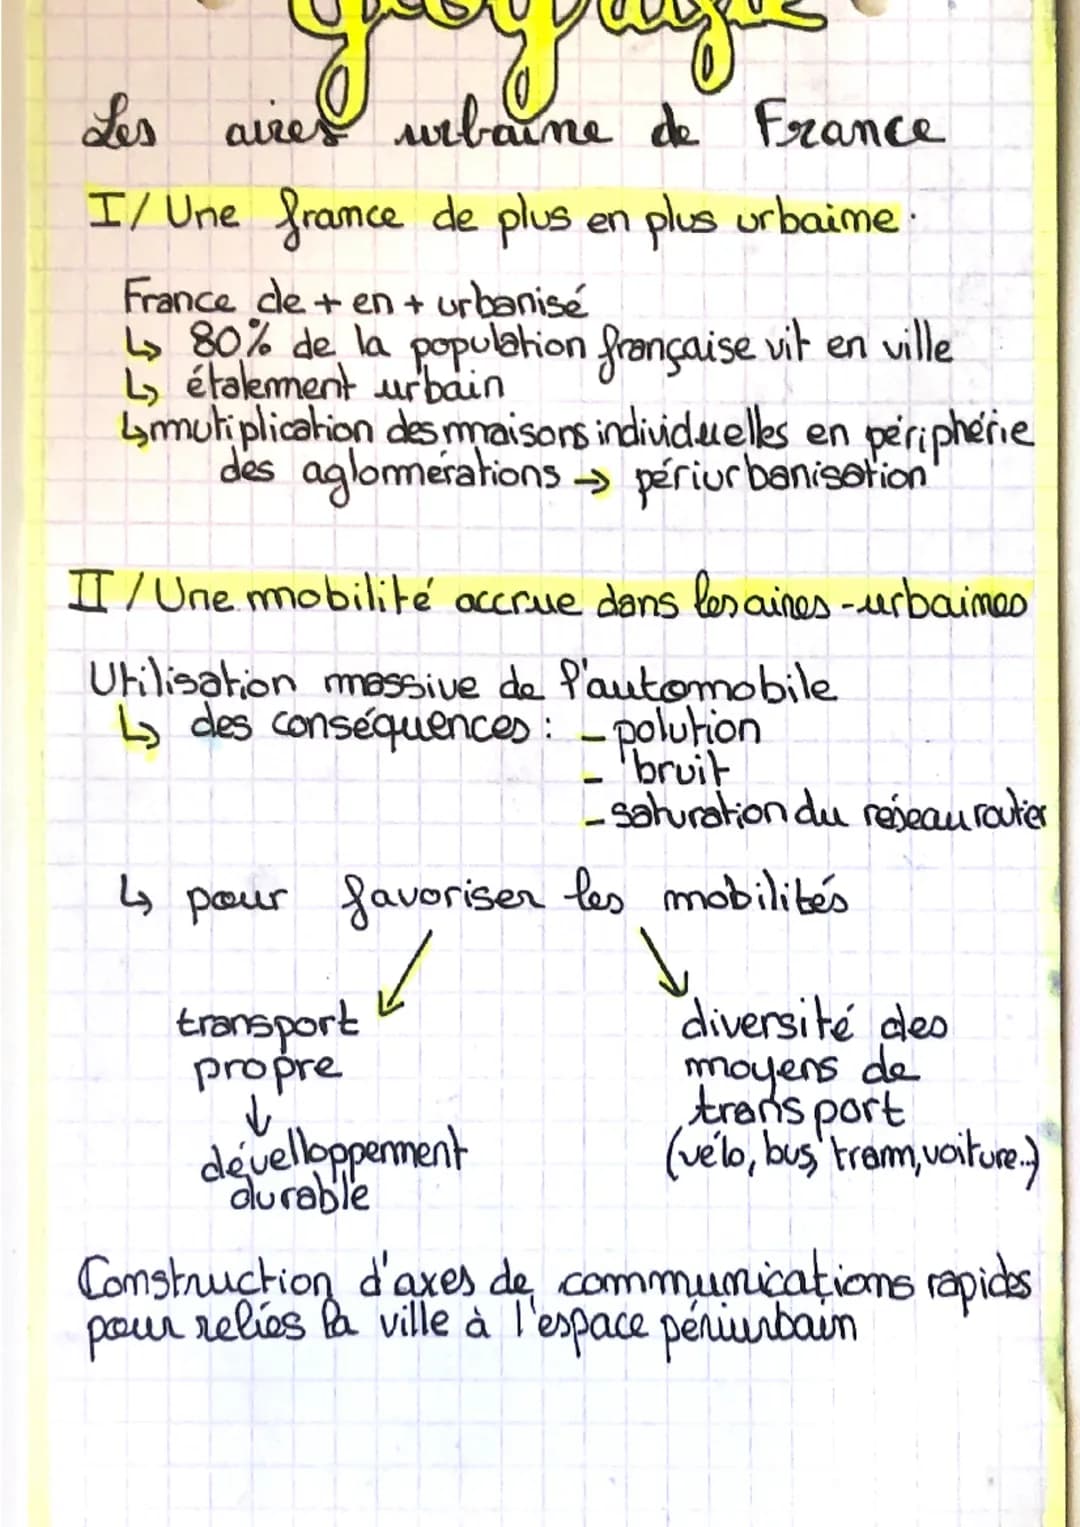 Les aires urbaine de France
I/ Une france de plus en plus urbaine.
France de + en + urbanisé
↳ 80% de la population française vit en ville
↳ étalement urbain
↳ mutiplication des maisons individuelles en périphérie
des aglomérations → périurbanisation
II/ Une mobilité accrue dans les aires-urbaines
Utilisation massive de l'automobile
↳ des conséquences : - polution
- bruit
- saturation du réseau routier
↳ pour favoriser les mobilités
transport
propre
↓
dévelloppement
durable
diversité des
moyens de
transport
(vélo, bus, tram, voiture..)
Construction d'axes de communications rapides
pour reliés la ville à l'espace périurbain